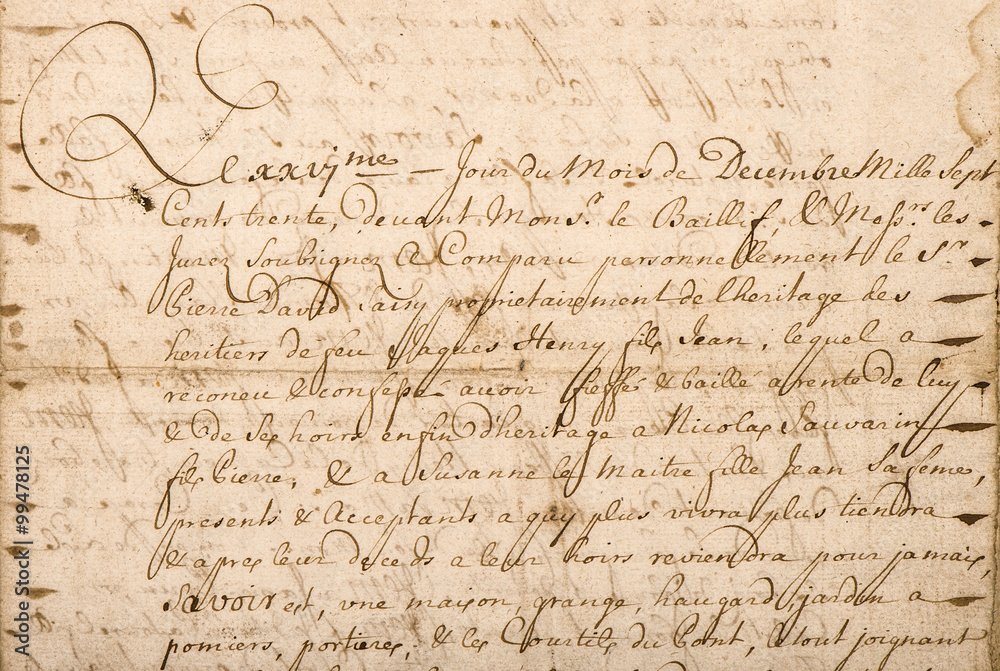 Le xxvj.me — Jour du Mois de Decembre Mille Sept
Cents trente, devant Mons.r le Baillif, & Mess.rs les
Jurez Soubsignez Est Comparu personnellement le S.r
Pierre David proprietairement de l'heritage des
heritiers de feu Jaques Henry fils Jean, lequel a
reconeu & confessé avoir fieffé & baillé a rente de luy
& de ses hoirs enfin d'heritage a Nicolas Sauvarin
fils Pierre, & a Susanne le Maitre fille Jean sa feme,
presents & Acceptants a quy plus vivra plus tiendra
& apres leur deceds a leur hoirs reviendra pour jamais,
Savoir est, une maison, grange, haugard, jardin a
pomiers, portieres, & les Courtils du Pont, le tout joignant
Adobe Stock | #99478125